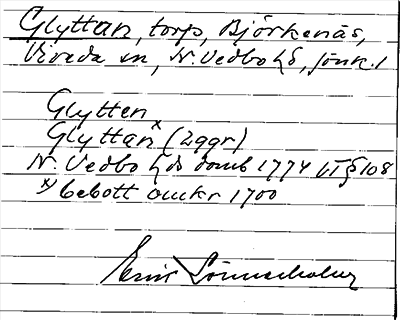 Glyttan, torp, Björkenäs,
Vireda sn, N. Vedbo hd, Jönk. l
Glytten
Glyttan x (2 ggr)
N. Vedbo hds domb 1774 VT § 108
x) bebott omkr 1700